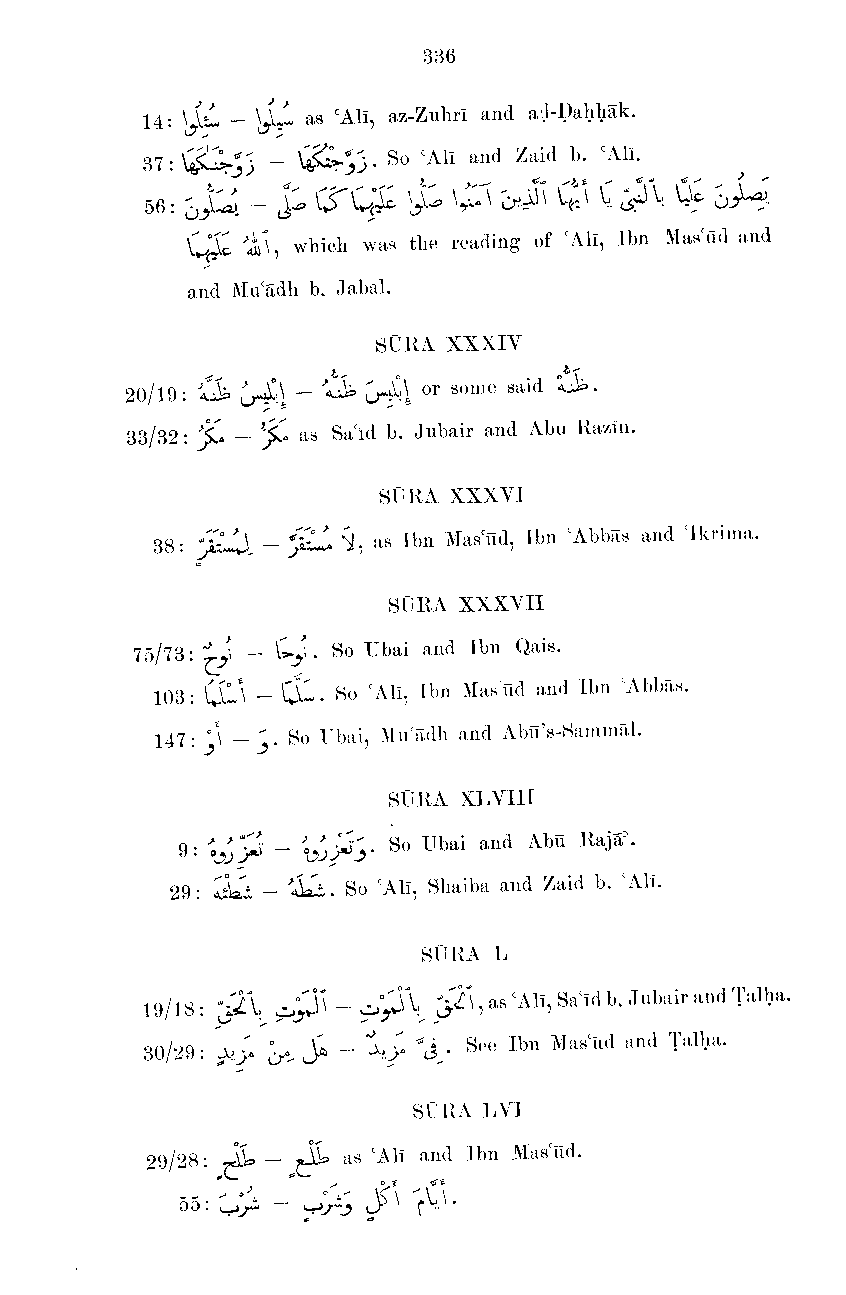 336
14: سُئِلُوا – سُيِلُوا as ʿAlī, az-Zuhrī and aḍ-Ḍaḥḥāk.
37: زَوَّجْنٰكَهَا – زَوَّجْتُكَهَا. So ʿAlī and Zaid b. ʿAlī.
56: يُصَلُّونَ – يَصِلُونَ عَلِيًّا بِٱلنَّبِىِّ يَا أَيُّهَا ٱلَّذِينَ آمَنُوا صَلُّوا عَلَيْهِمَا كَمَا صَلَّى
ٱللّٰهُ عَلَيْهِمَا, which was the reading of ʿAlī, Ibn Masʿūd and
and Muʿādh b. Jabal.
SŪRA XXXIV
20/19: إِبْلِيسُ ظَنَّهُ – إِبْلِيسَ ظَنُّهُ or some said ظَنُّهْ.
33/32: مَكْرُ – مَكَرُّ as Saʿīd b. Jubair and Abu Razīn.
SŪRA XXXVI
38: لِمُسْتَقَرٍّ – لَا مُسْتَقَرَّ, as Ibn Masʿūd, Ibn ʿAbbās and ʿIkrima.
SŪRA XXXVII
75/73: نُوحٌ – نُوحًا. So Ubai and Ibn Qais.
103: أَسْلَمَا – سَلَّمَا. So ʿAlī, Ibn Masʿūd and Ibn ʿAbbās.
147: أَوْ – وَ. So Ubai, Muʿādh and Abū's-Sammāl.
SŪRA XLVIII
9: تُعَزِّرُوهُ – وَتَعْزِرُوهُ. So Ubai and Abū Rajāʾ.
29: شَطْئَهُ – شَطَهُ. So ʿAlī, Shaiba and Zaid b. ʿAlī.
SŪRA L
19/18: ٱلْمَوْتِ بِٱلْحَقِّ – ٱلْحَقِّ بِٱلْمَوْتِ, as ʿAlī, Saʿīd b. Jubair and Ṭalḥa.
30/29: هَلْ مِنْ مَزِيدٍ – فِىَّ مَزِيدٌ. See Ibn Masʿūd and Ṭalḥa.
SŪRA LVI
29/28: طَلْحٍ – طَلْعٍ as ʿAlī and Ibn Masʿūd.
55: شُرْبَ – أَيَّامَ أَكْلٍ وَشَرْبٍ.